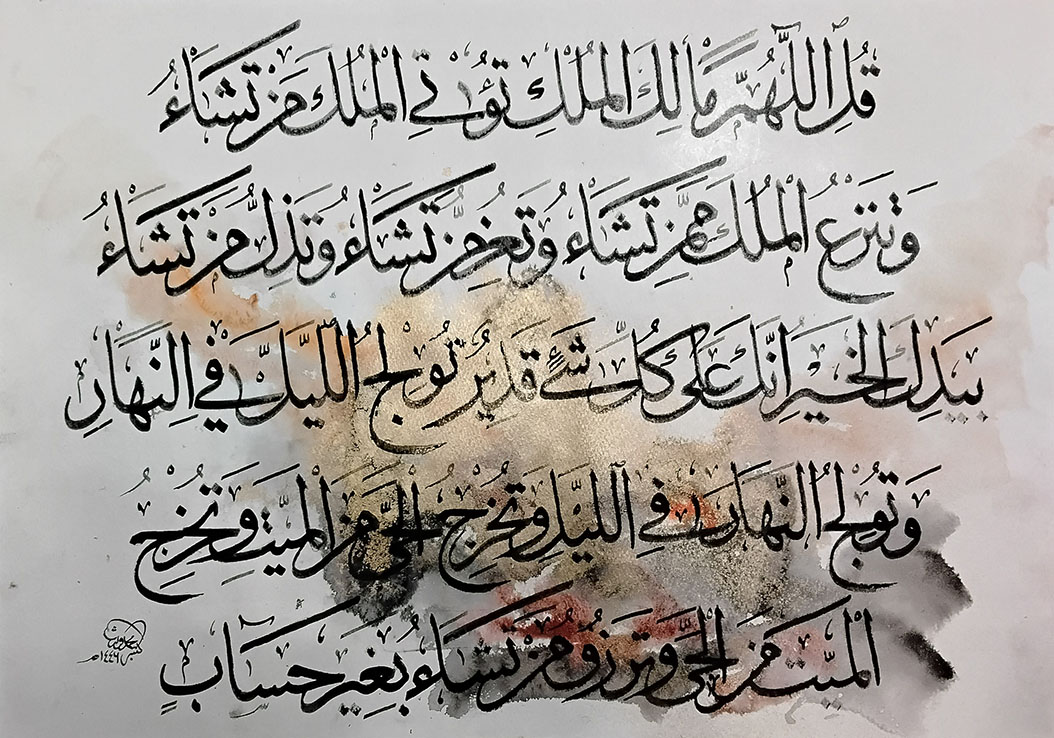 قُلِ اللَّهُمَّ مَالِكَ الْمُلْكِ تُؤْتِي الْمُلْكَ مَن تَشَاءُ
وَتَنزِعُ الْمُلْكَ مِمَّن تَشَاءُ وَتُعِزُّ مَن تَشَاءُ وَتُذِلُّ مَن تَشَاءُ
بِيَدِكَ الْخَيْرُ إِنَّكَ عَلَى كُلِّ شَيْءٍ قَدِيرٌ تُولِجُ اللَّيْلَ فِي النَّهَارِ
وَتُولِجُ النَّهَارَ فِي اللَّيْلِ وَتُخْرِجُ الْحَيَّ مِنَ الْمَيِّتِ وَتُخْرِجُ
الْمَيِّتَ مِنَ الْحَيِّ وَتَرْزُقُ مَن تَشَاءُ بِغَيْرِ حِسَابٍ
١٤٤٦